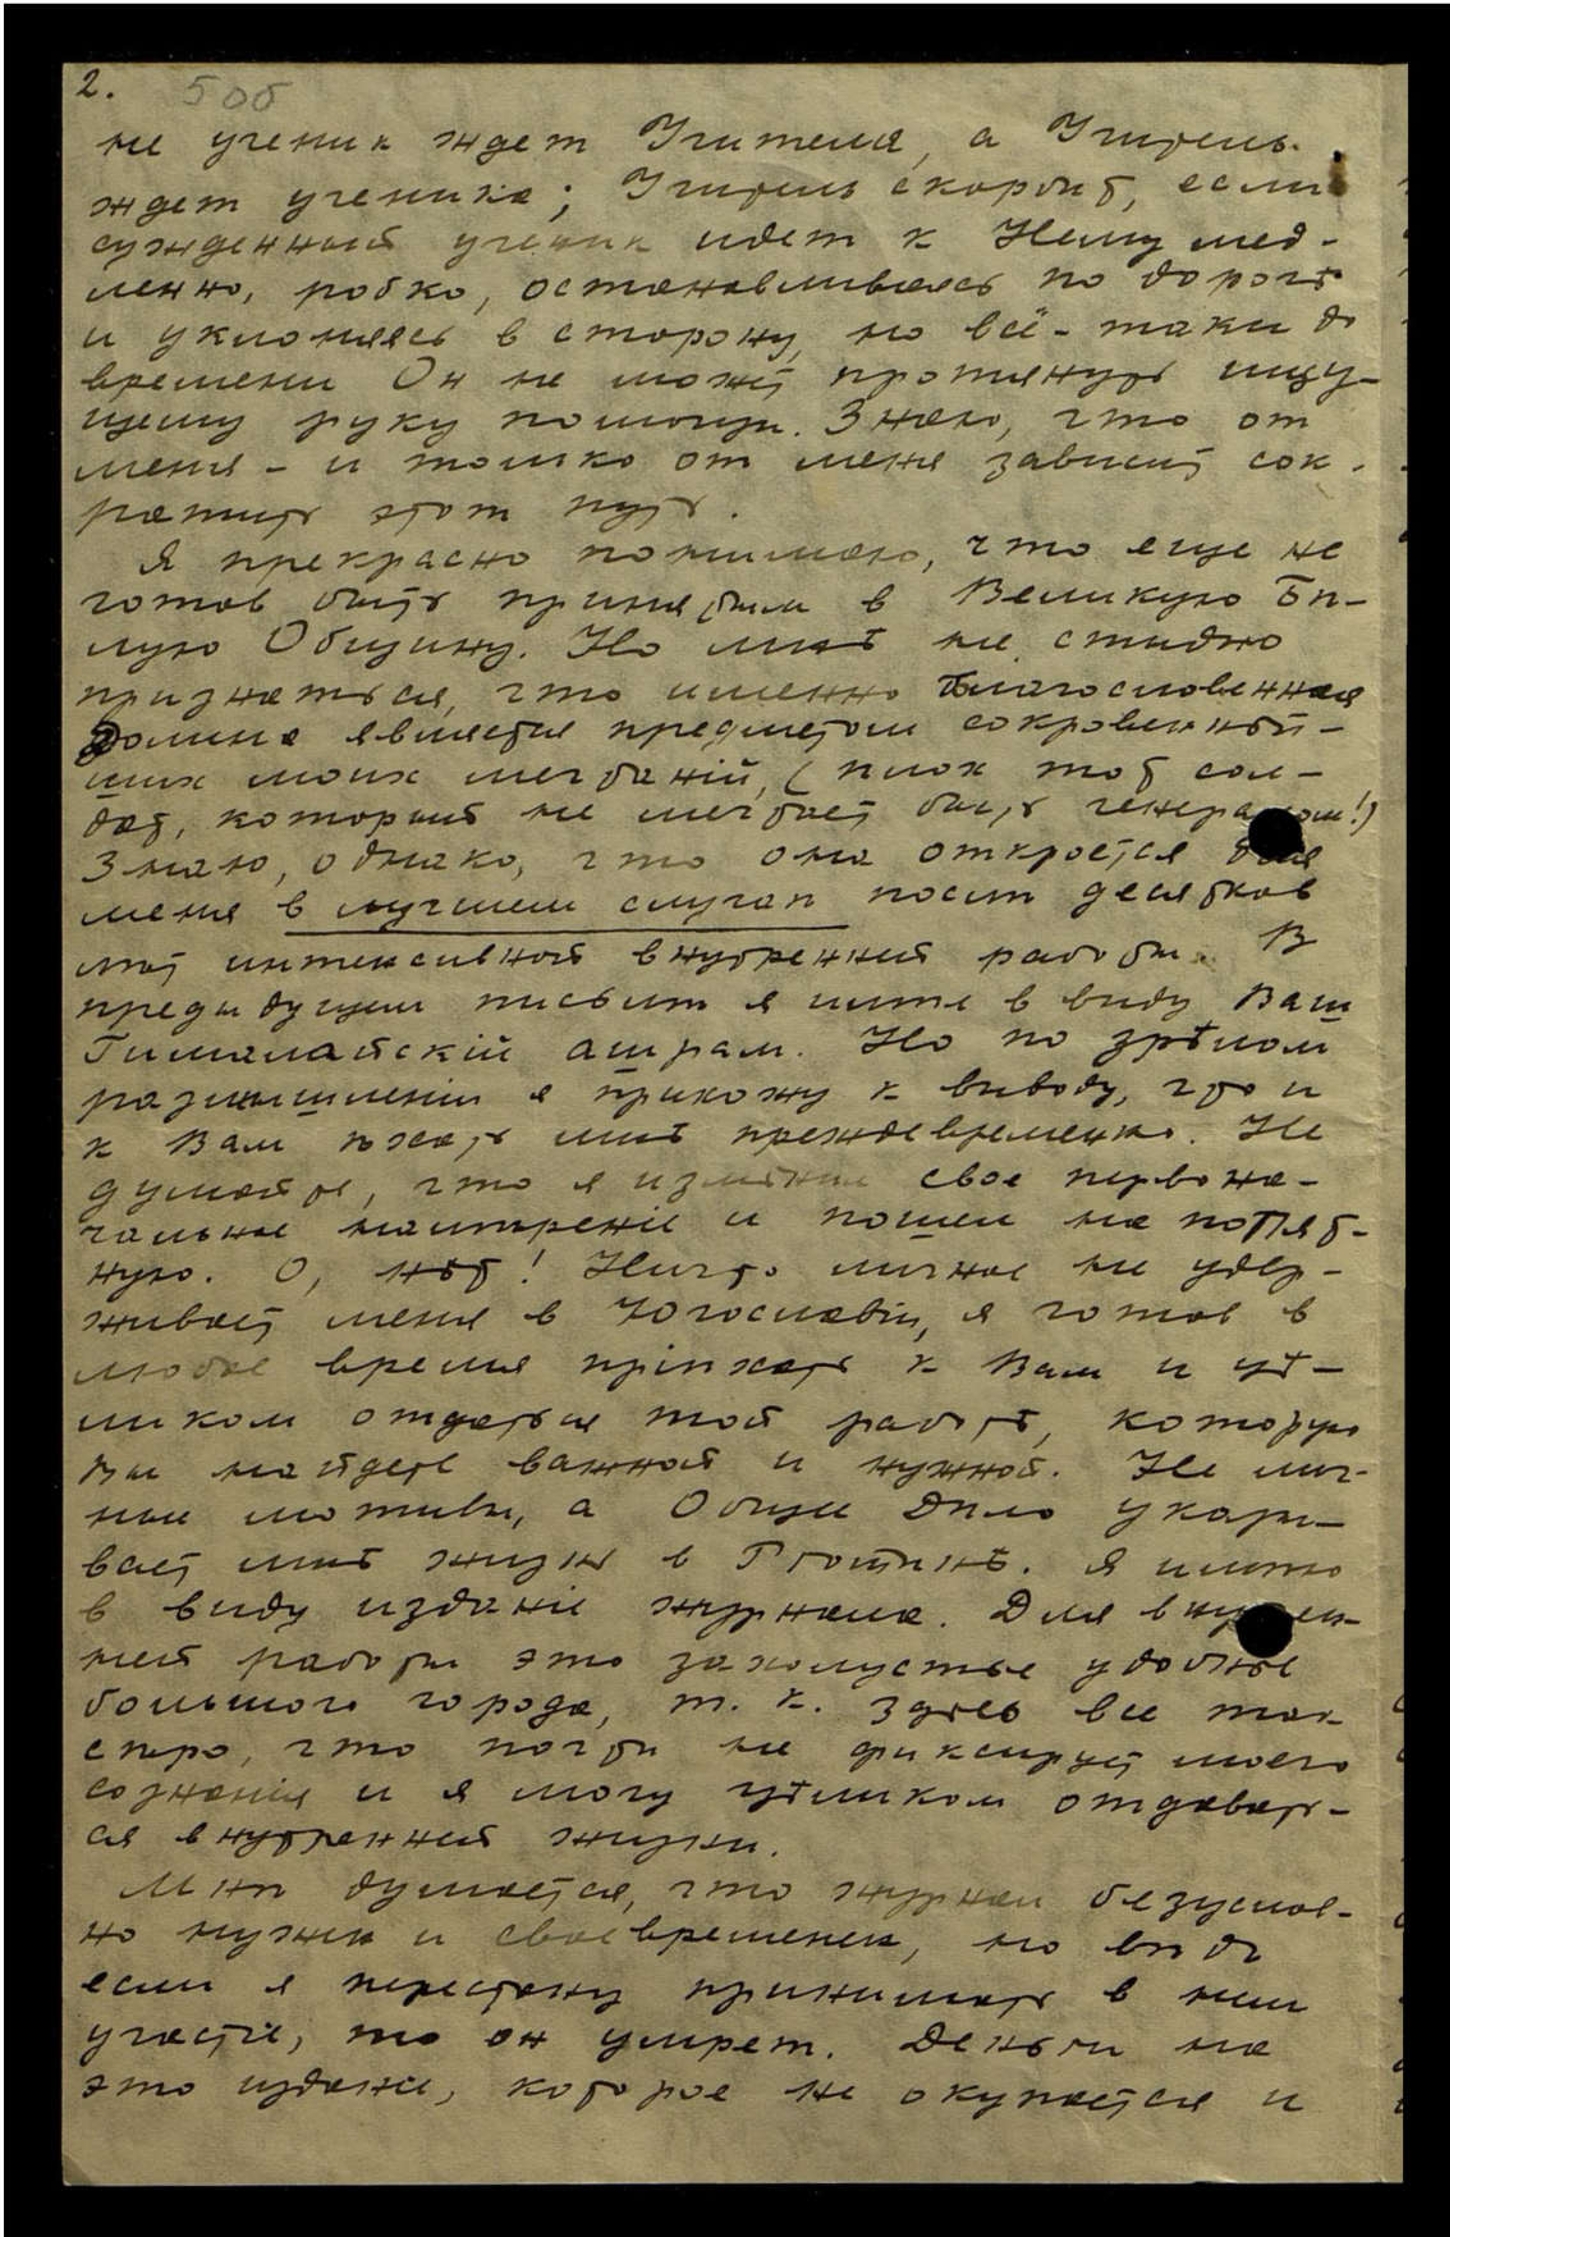 2. 50б
не ученик ждет Учителя, а Учитель
ждет ученика; Учитель скорбит, если
сужденный ученик идет к Нему мед-
ленно, робко, останавливаясь по дорогѣ
и уклоняясь в сторону, но всё-таки до
времени Он не может протянуть ищу-
щему руку помощи. Знаю, что от
меня - и только от меня зависит сок-
ратить этот путь.
Я прекрасно понимаю, что еще не
готов быть принятым в Великую Бѣ-
лую Общину. Но мнѣ не стыдно
признаться, что именно Благословенная
Долина является предметом сокровеннѣй-
ших моих мечтаній, (плох тот сол-
дат, который не мечтает быть генералом!)
Знаю, однако, что она откроется для
меня в лучшем случаѣ послѣ десятков
лѣт интенсивной внутренней работы. В
предыдущем письмѣ я имѣл в виду Ваш
Гималайскій ашрам. Но по зрѣлом
размышленіи я прихожу к выводу, что и
к Вам ѣхать мнѣ преждевременно. Не
думайте, что я измѣнил свое первона-
чальное намѣреніе и пошел на попят-
ную. О, нѣт! Ничто личное не удер-
живает меня в Югославіи, я готов в
любое время пріѣхать к Вам и цѣ-
ликом отдаться той работѣ, которую
Вы найдете важной и нужной. Не лич-
ные мотивы, а Общее Дѣло указы-
вает мнѣ жизнь в Рготинѣ. Я имѣю
в виду изданіе журнала. Для внутрен-
ней работы это захолустье удобнѣе
большого города, т. к. здѣсь все так
сѣро, что почти не фиксирует моего
сознанія и я могу цѣликом отдавать-
ся внутренней жизни.
Мнѣ думается, что журнал безуслов-
но нужен и своевременен, но вѣдь
если я перестану принимать в нем
участіе, то он умрет. Деньги на
это изданіе, которое не окупается и